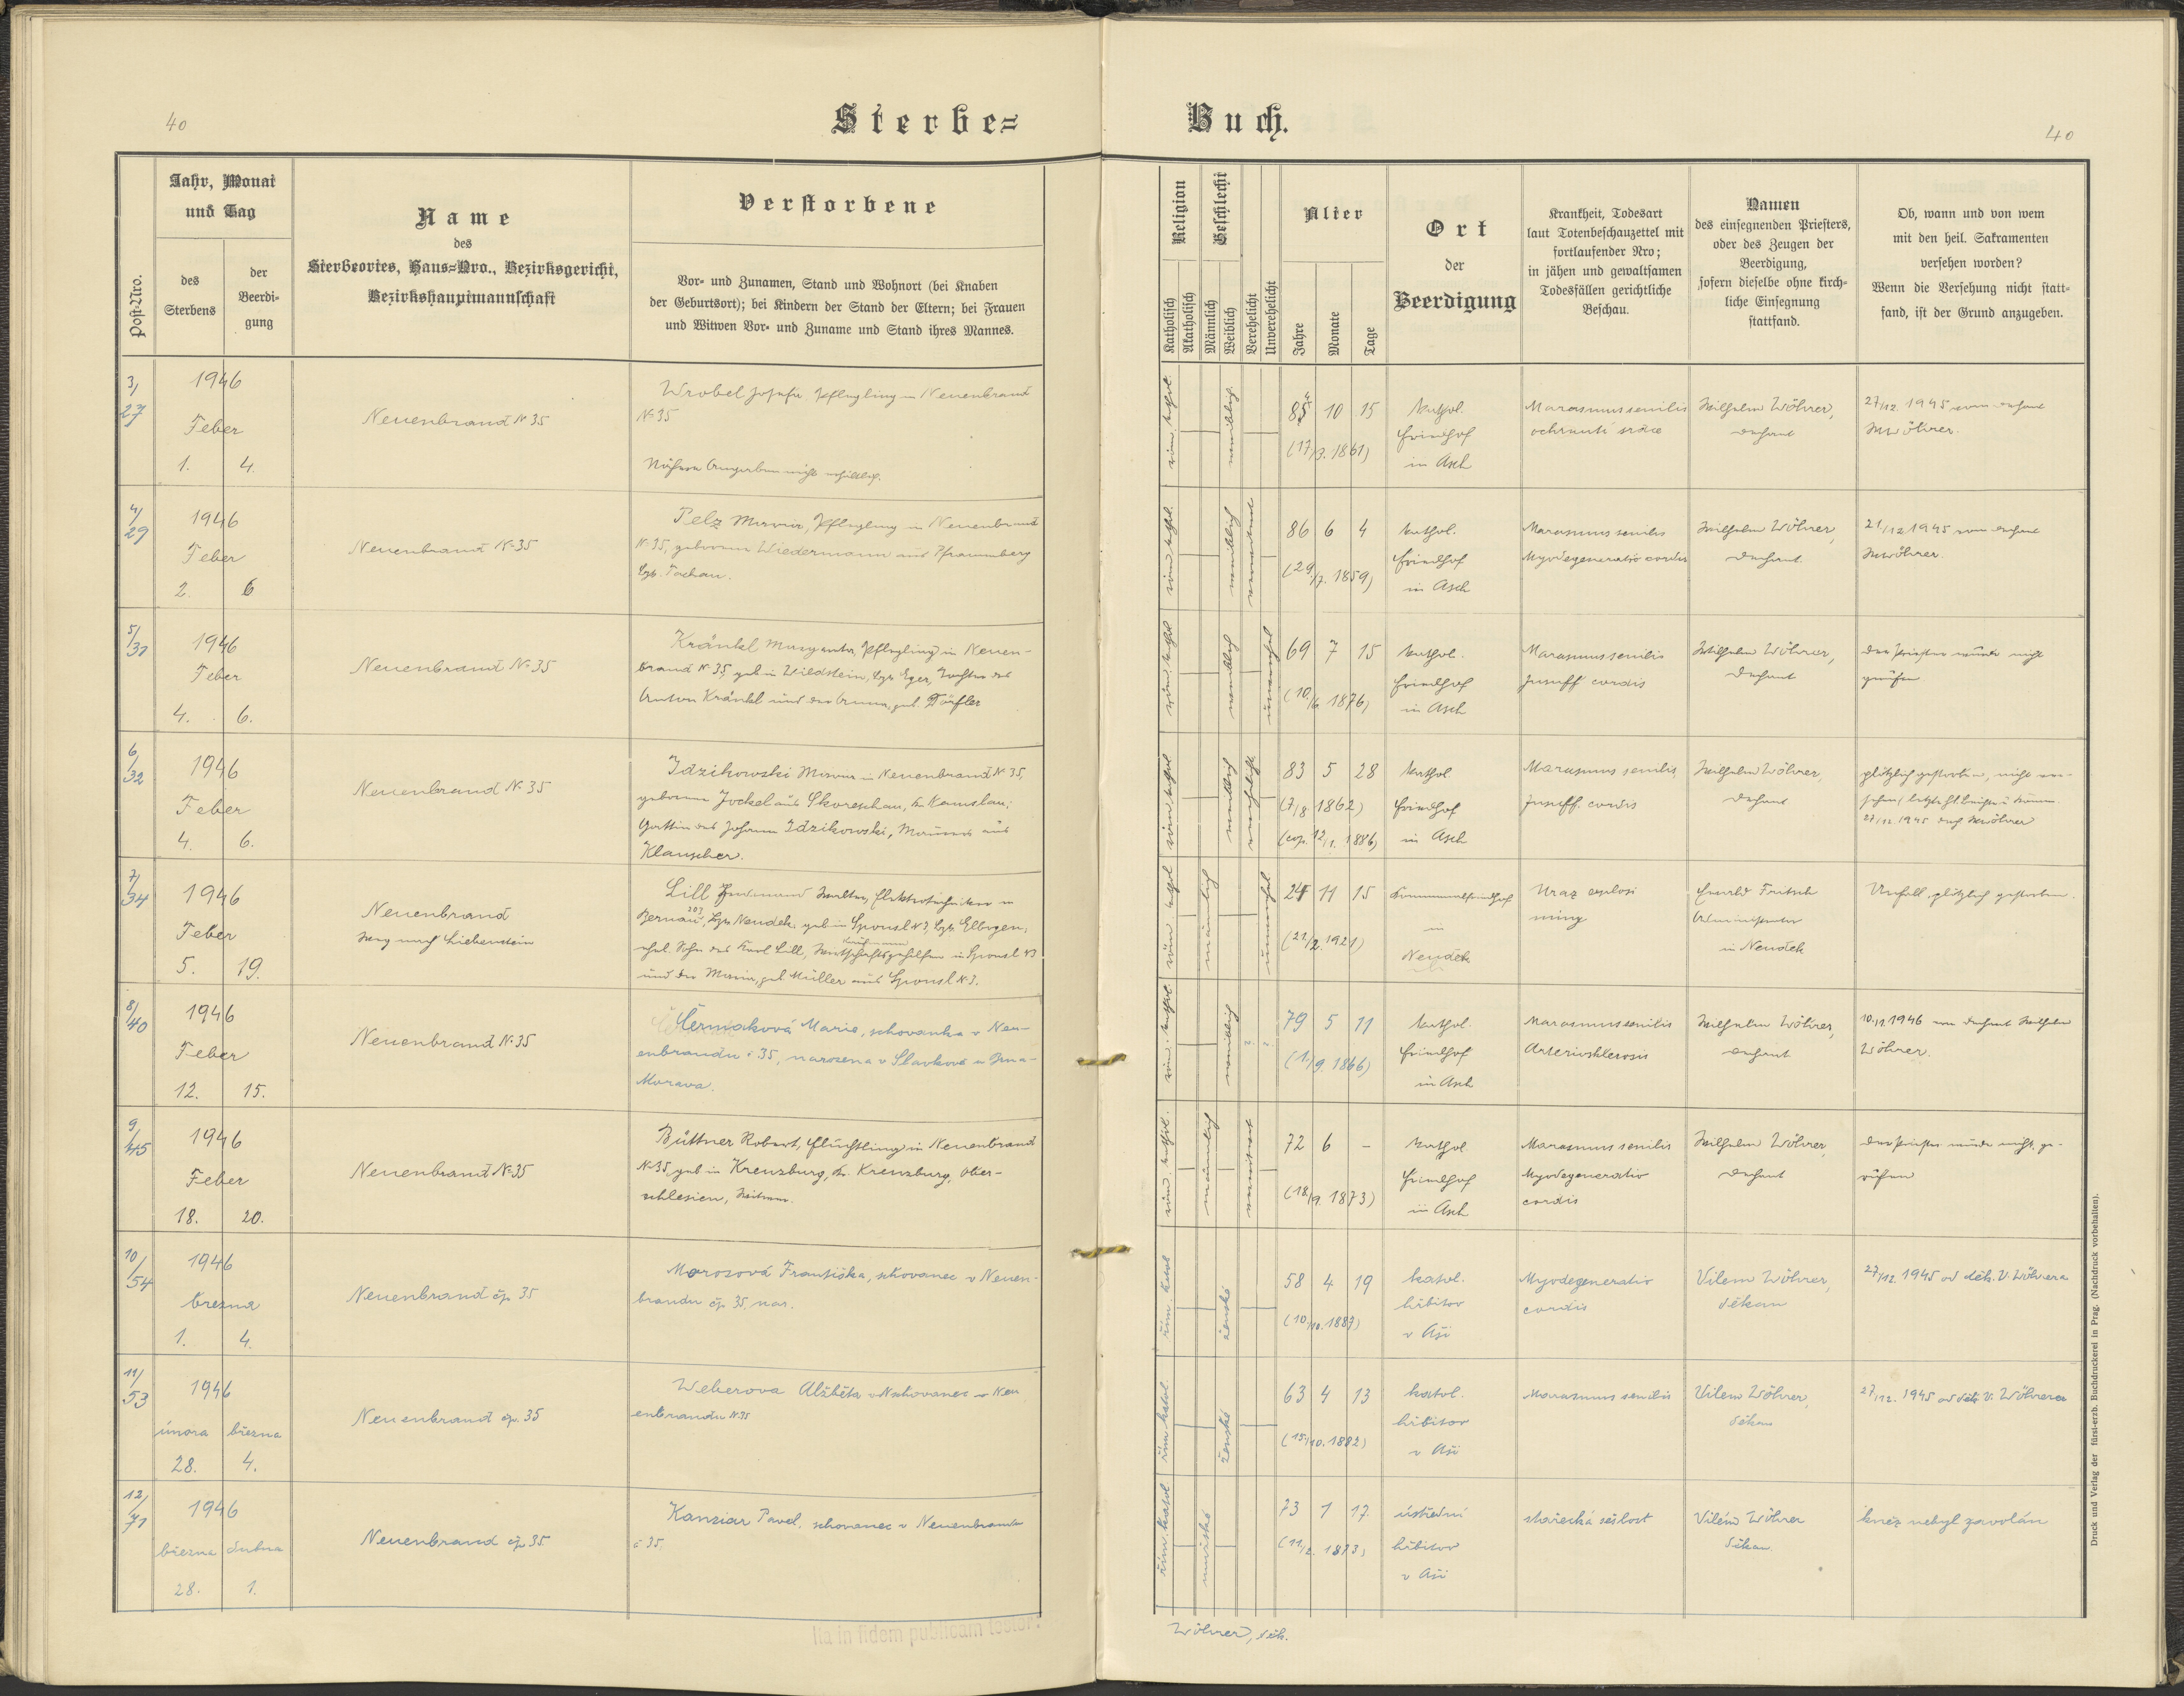 40
Sterbe=
Buch.
40
Post-Nro.
Jahr, Monat
und Tag
des
Sterbens
der
Beerdi-
gung
Name
des
Sterbeortes, Haus=Nro., Bezirksgericht,
Bezirkshauptmannschaft
Verstorbene
Vor- und Zunamen, Stand und Wohnort (bei Knaben
der Geburtsort); bei Kindern der Stand der Eltern; bei Frauen
und Witwen Vor- und Zuname und Stand ihres Mannes.
Religion
Katholisch
Akatholisch
Geschlecht
Männlich
Weiblich
Verehelicht
Unverehelicht
Alter
Jahre
Monate
Tage
Ort
der
Beerdigung
Krankheit, Todesart
laut Totenbeschauzettel mit
fortlaufender Nro;
in jähen und gewaltsamen
Todesfällen gerichtliche
Beschau.
Namen
des einsegnenden Priesters,
oder des Zeugen der
Beerdigung,
sofern dieselbe ohne kirch-
liche Einsegnung
stattfand.
Ob, wann und von wem
mit den heil. Sakramenten
versehen worden?
Wenn die Versehung nicht statt=
fand, ist der Grund anzugeben.
3/27
1946
Feber
1. 4.
Neuenbrand N 35
Wrobel Josefa Pflegling in Neuenbrand
N. 35
Nähere Angaben nicht erhältlich.
röm. kathol.
weiblich
10 15
(17/3. 1861)
Kathol.
Friedhof
in Asch
Marasmus senilis
ochrnutí srdce
Wilhelm Wöhrer,
Dechant
27/12. 1945 vom Dechant
W. Wöhrer.
4/29
1946
Feber
2. 6
Neuenbrand N. 35
Pelz Maria, Pflegling in Neuenbrand
N. 35, geborene Wiedermann aus Pfraumberg
Bzk. Tachau.
röm. kathol.
weiblich
verwitwet
86 6 4
(29./7. 1859)
Kathol.
Friedhof
in Asch
Marasmus senilis
Myodegeneratio cordis
Wilhelm Wöhrer,
Dechant
21/12 1945 vom Dechant
W. Wöhrer.
5/31
1946
Feber
4. 6.
Neuenbrand N. 35
Kränkl Margareta, Pflegling in Neuen-
brand N. 35, geb. in Wildstein, Bzk. Eger, Tochter des
Anton Kränkl und der Anna, geb. Dörfler
röm. kathol
weiblich
unverehel
69 7 15
(10./6. 1876)
Kathol.
Friedhof
in Asch
Marasmus senilis
Insuff cordis
Wilhelm Wöhrer,
Dechant
Der Priester wurde nicht
gerufen.
6/32
1946
Feber
4. 6.
Neuenbrand N. 35
Idzikowski Maria in Neuenbrand N. 35,
geborene Jockel aus Skoreschau, Kr. Namslau;
Gattin des Johann Idzikowski, Maurers aus
Klauscher.
röm. kathol
weiblich
verehelicht
83 5 28
(7/8 1862)
(cop. 12/1. 1886)
Kathol
Friedhof
in Asch
Marasmus senilis,
Insuff. cordis
Wilhelm Wöhrer,
Dechant
plötzlich gestorben, nicht ver-
sehen (letzte hl. Beichte u. Komm.
27/12. 1945 durch W. Wöhrer
7/34
1946
Feber
5. 19.
Neuenbrand
Weg nach Liebenstein
Lill Ferdinand Walter, Elektrotechniker in
Bernau 203, Bzk. Neudek, geb. in Sponsl N 3, Bzk. Elbogen,
ehel. Sohn des Karl Lill, Wirtschaftsgehilfen in Sponsl N3
und der Maria, geb. Müller aus Sponsl N. 3.
männlich
24 11 15
(21/2. 1921)
Kommunalfriedhof
in
Neudek
Uraz explosi
miny
Ewald Fritsch
Administrator
in Neudek
Unfall, plötzlich gestorben.
8/40
1946
Feber
12. 15.
Neuenbrand N. 35
Čermáková Marie, schovanka v Neu-
enbrandu č. 35, narozena v Slavkově u Brna-
Morava.
röm. kathol.
weiblich
? ?
79 5 11
(1./9. 1866)
Kathol.
Friedhof
in Asch
Marasmus senilis
Arteriosklerosis
Wilhelm Wöhrer,
Dechant
10./1. 1946 von Dechant Wilhelm
Wöhrer.
9/45
1946
Feber
18. 20.
Neuenbrand N. 35
Büttner Robert, Flüchtling in Neuenbrand
N. 35, geb. in Kreuzburg, Kr. Kreuzburg, Ober-
schlesien, Witwer.
röm. kathol.
männlich
verwitwet
72 6 -
(18./9. 1873)
Kathol
Friedhof
in Asch
Marasmus senilis
Myodegeneratio
cordis
Wilhelm Wöhrer,
Dechant
Der Priester wurde nicht ge-
rufen
10/54
1946
března
1. 4.
Neuenbrand čp. 35
Morosová Františka, schovanec v Neuen-
brandu čp. 35, nar.
řím. katol
ženské
58 4 19
(10./10. 1887)
katol.
hřbitov
v Aši
Myodegeneratio
cordis
Vilem Wöhrer,
děkan
27/12. 1945 od děk. V. Wöhrera
11/53
1946
února března
28. 4.
Neuenbrand čp. 35
Weberova Alžběta schovanec v Neu
enbrandu N. 35
řím. katol.
ženské
63 4 13
(15./10. 1882)
katol.
hřbitov
v Aši
Marasmus senilis
Vilem Wöhrer,
děkan
27/12. 1945 od děk. V. Wöhrera
12/71
1946
března dubna
28. 1.
Neuenbrand čp. 35
Kanziar Pavel, schovanec v Neuenbrandu
č 35.
řím. katol
mužské
73 1 17
(11/2. 1873)
ústřední
hřbitov
v Aši
stařecká sešlost
Vilém Wöhrer
děkan.
kněz nebyl zavolán
Ita in fidem publicam testor:
Wöhrer, děk.
Druck und Verlag der fürst-erzb. Buchdruckerei in Prag. (Nachdruck vorbehalten).